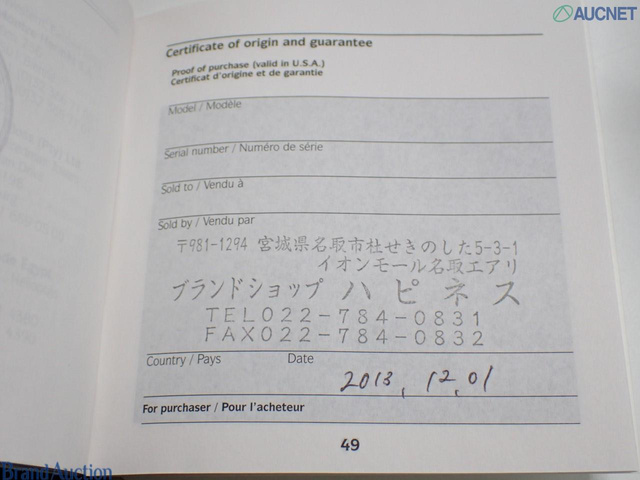 AUCNET
Certificate of origin and guarantee
Proof of purchase (valid in U.S.A.)
Certificat d'origine et de garantie
Model / Modèle
Serial number / Numéro de série
Sold to / Vendu à
Sold by / Vendu par
〒981-1294 宮城県名取市杜せきのした5-3-1
イオンモール名取エアリ
ブランドショップ ハピネス
TEL022-784-0831
FAX022-784-0832
Country / Pays Date
2013, 12, 01
For purchaser / Pour l'acheteur
49
Brand Auction